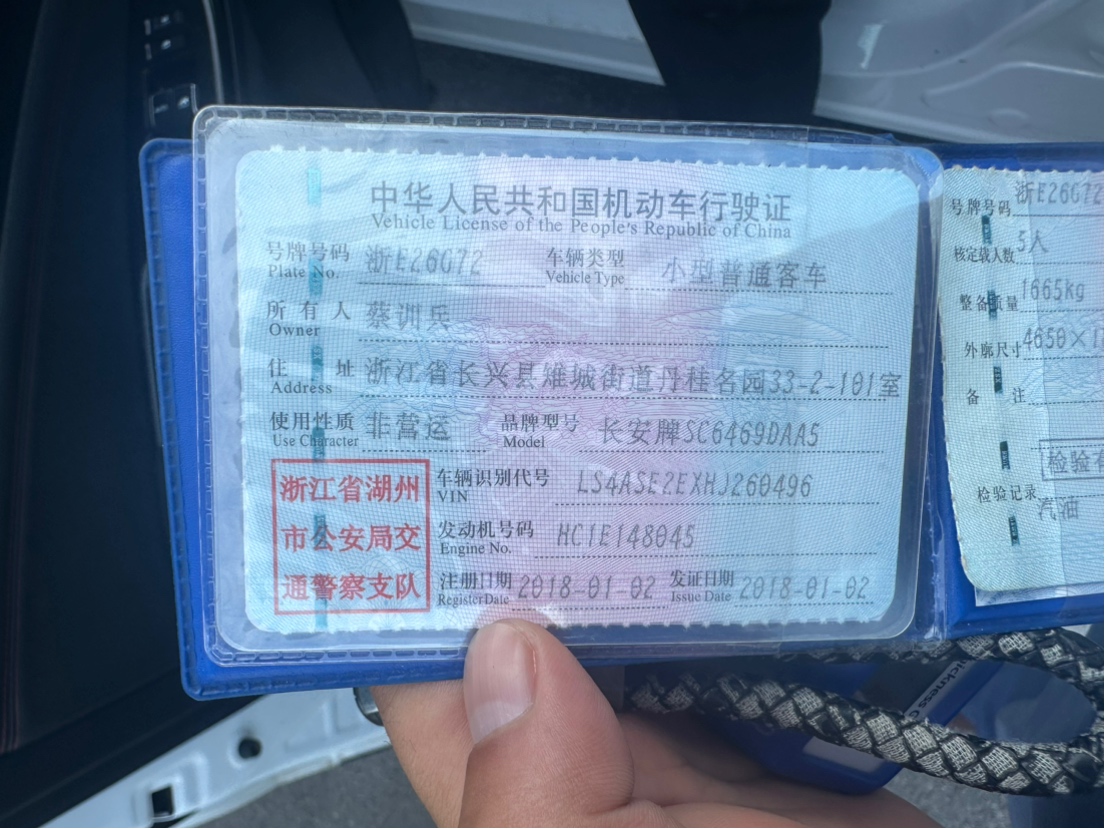 中华人民共和国机动车行驶证
Vehicle License of the People's Republic of China
号牌号码 浙E26G72 车辆类型 小型普通客车
Plate No. Vehicle Type
所有人 蔡训兵
Owner
住址 浙江省长兴县雉城街道丹桂名园33-2-101室
Address
使用性质 非营运 品牌型号 长安牌SC6469DAA5
Use Character Model
浙江省湖州
市公安局交
通警察支队
车辆识别代号 LS4ASE2EXHJ260496
VIN
发动机号码 HC1E148045
Engine No.
注册日期 2018-01-02 发证日期 2018-01-02
Register Date Issue Date
号牌号码 浙E26G72
核定载人数 5人
整备质量 1665kg
外廓尺寸 4650×1
备注
检验有
检验记录
汽油